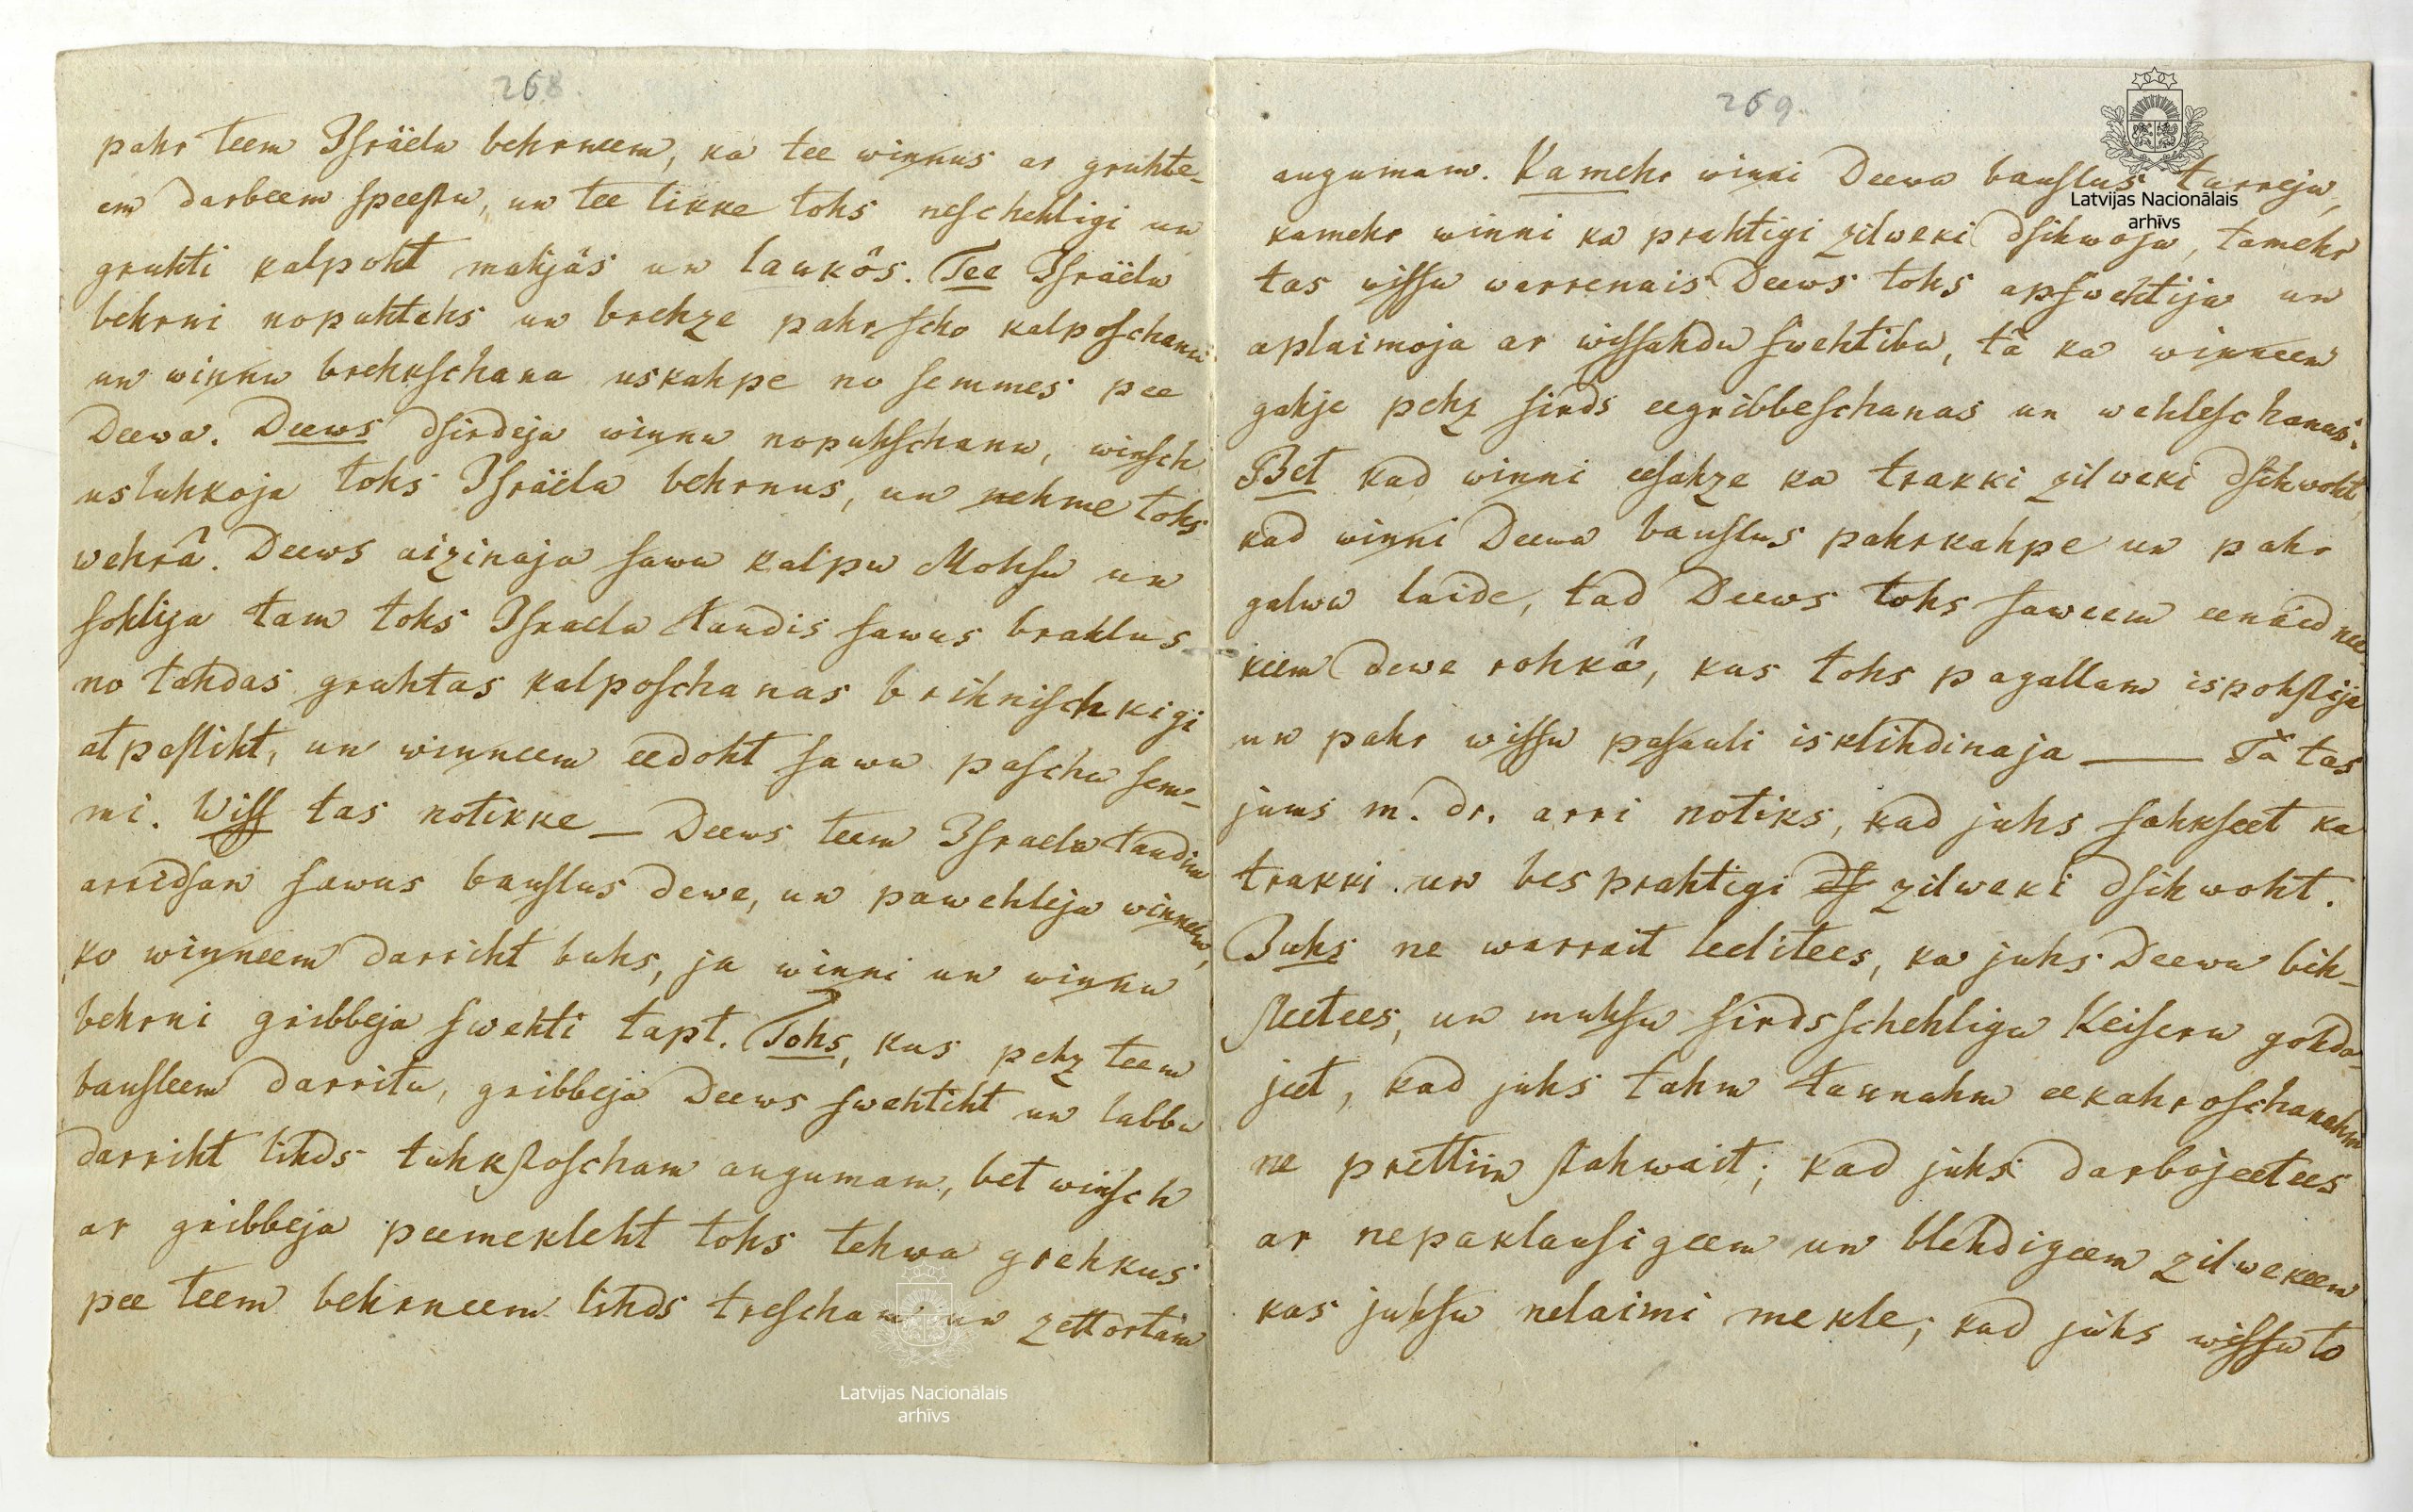 268.
pahr teem Iſräelu behrneem, ka tee wiņņus ar gruhte-
em darbeem ſpeeſtu, un tee tikke tohs neſchehligi un
gruhti kalpoht mahjâs un laukôs. Tee Iſräelu
behrni nopuhtehs un brehze pahr ſcho kalpoſchanu
un wiņņu brehkſchana uskahpe no ſemmes pee
Deewa. Deews dſirdeja wiņņu nopuhſchanu, wiņſch
usluhkoja tohs Iſräelu behrnus, un nehme tohs
wehrâ. Deews aizinaja ſawu kalpu Mohſu un
ſohlija tam tohs Iſraelu taudis ſawus brahlus
no tahdas gruhtas kalpoſchanas brihniſchkigi
atpeſtiht, un wiņņeem eedoht ſawu paſchu ſem-
mi. Wiſſ tas notikke — Deews teem Iſraelu taudim
arridſan ſawus bauſlus dewe, un pawehleja wiņņeem,
ko wiņņeem darriht buhs, ja wiņņi un wiņņu
behrni gribbeja ſwehti tapt. Tohs, kas pehz teem
bauſleem darritu, gribbeja Deews ſwehtiht un labbu
darriht lihds tuhkſtoſcham augumam, bet wiņſch
ar gribbeja peemekleht tohs tehwa grehkus
pee teem behrneem lihds treſcham un zettortam
Latvijas Nacionālais
arhīvs
269.
augumam. Kamehr wiņņi Deewa bauſlus turreja,
kamehr wiņņi ka prahtigi zilweki dſihwoja, tamehr
tas wiſſu warrenais Deews tohs apſwehtija un
aplaimoja ar wiſſahdu ſwehtibu, tâ ka wiņņeem
gahje pehz ſirds eegribbeſchanas un wehleſchanas.
Bet kad wiņņi eeſahze ka trakki zilweki dſihwoht,
kad wiņņi Deewa bauſlus pahrkahpe un pahr
galwu laide, tad Deews tohs ſaweem eenaidnee-
keem dewe rohkâ, kas tohs pagallam ispohſtija
un pahr wiſſu paſauli isklihdinaja — Tâ tas
jums m. dr. arri notiks, kad juhs ſahkſeet ka
trakki un besprahtigi dſ zilweki dſihwoht.
Juhs ne warrait leelitees, ka juhs Deewu bih-
ſteetees, un muhſu ſirdsſchehligu Keiſeru gohda-
jeet, kad juhs tahm taunahm eekahroſchanahm
ne prettim ſtahwait; kad juhs darbojeetees
ar nepaklauſigeem un blehdigeem zilwekeem
kas juhſu nelaimi mekle; kad juhs wiſſu to
Latvijas Nacionālais
arhīvs